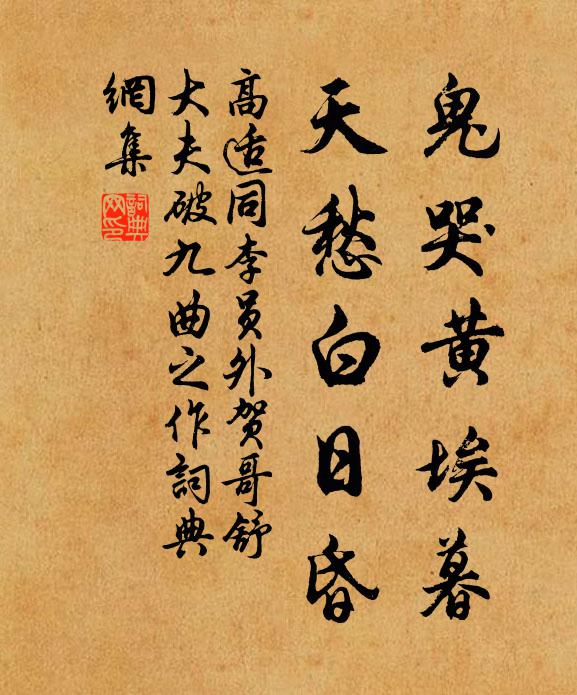 鬼哭黄埃暮
天愁白日昏
高适同李員外贺哥舒
大夫破九曲之作詞典
網集
詞典
网印